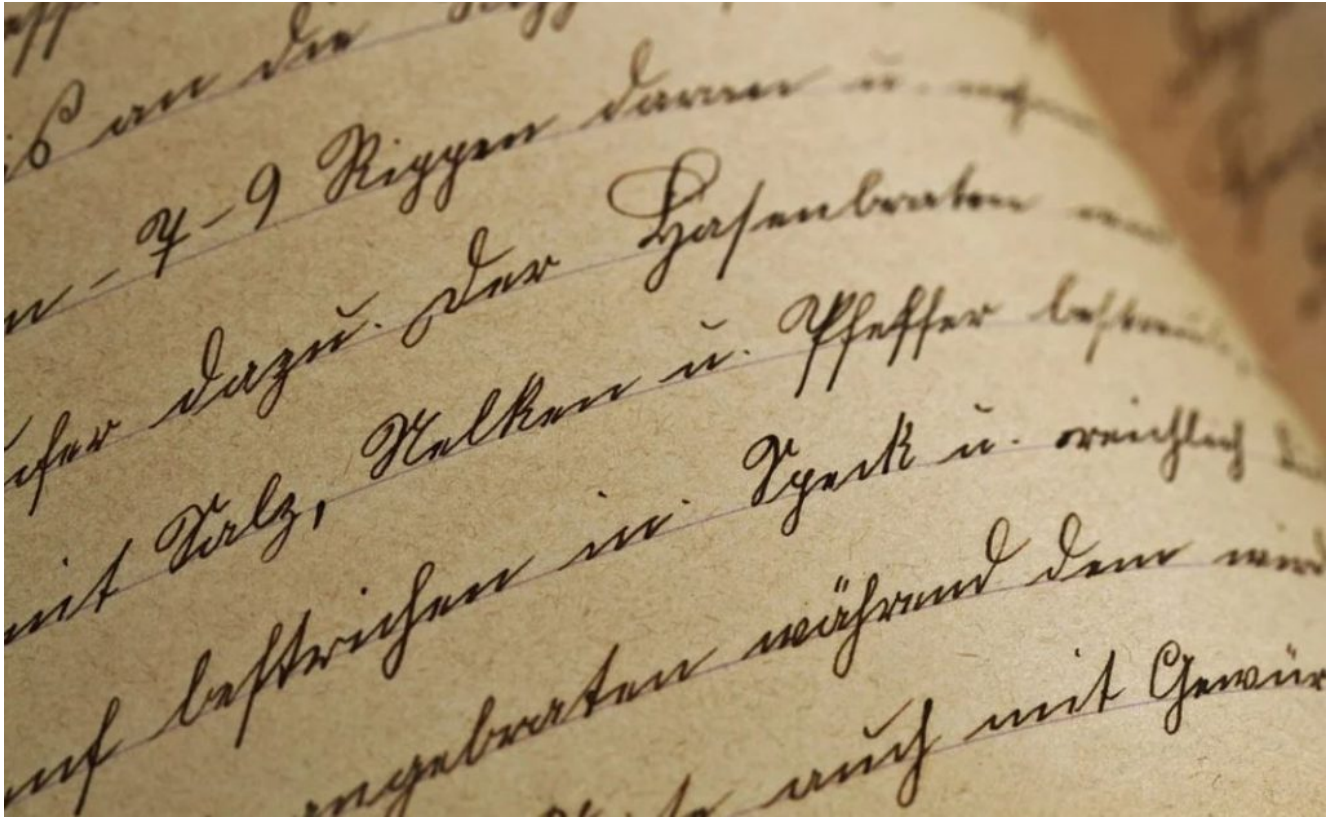 an die
7-9 Rippen daran u.
dazu. Der Hasenbraten
mit Salz, Nelken u. Pfeffer bestreut
bestrichen in Speck u. reichlich
angebraten während dem wird
auch mit Gewür